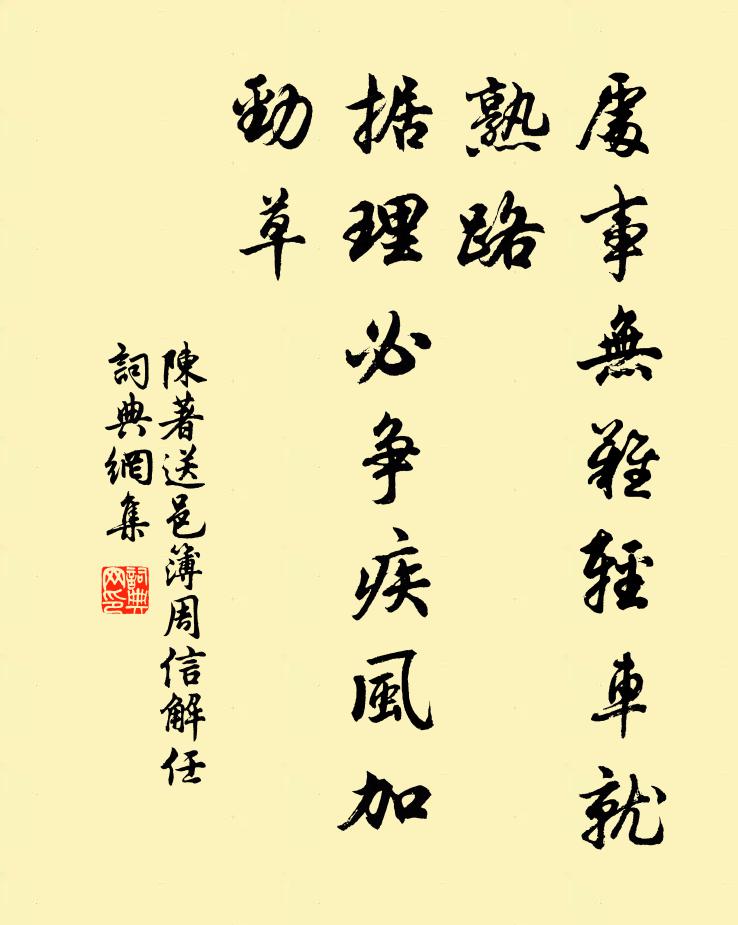 處事無難輕車就
熟路
据理必争疾風加
勁草
陳著送邑簿周信解任
詞典網集
詞典
网印